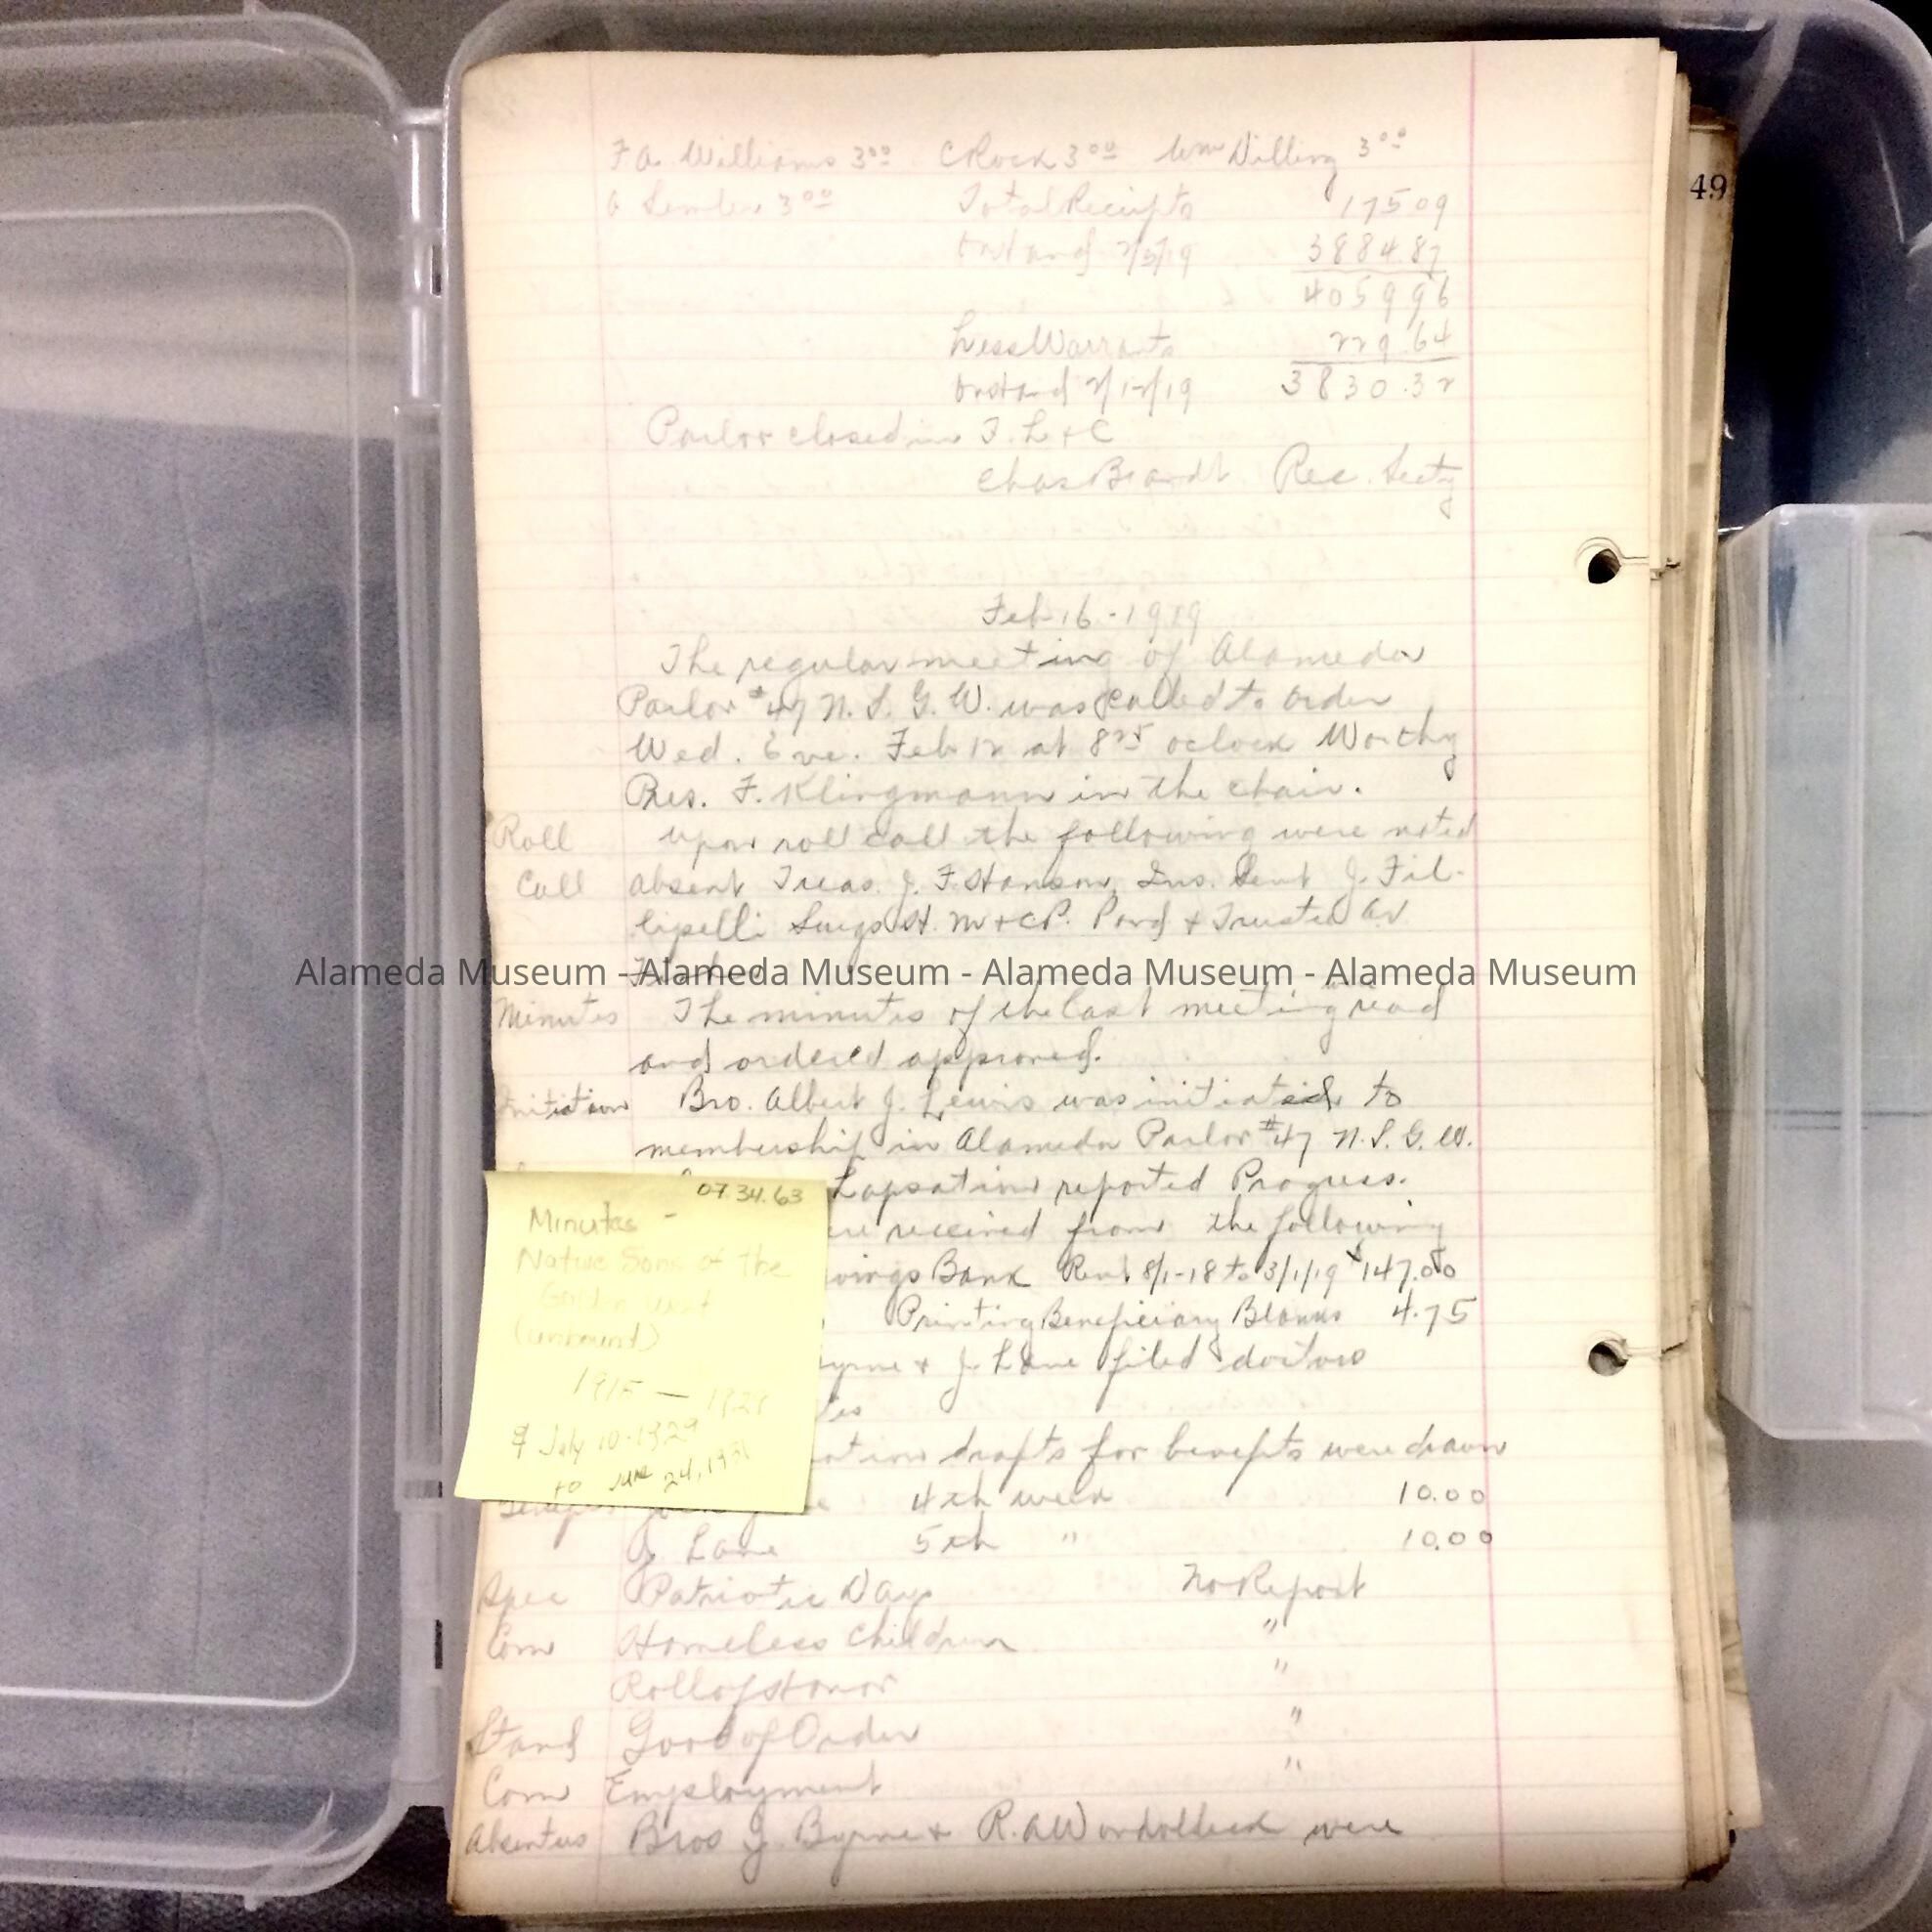 F A Williams 3.00 C Rock 3.00 Wm Dilling 3.00
49
3.00 Total Receipts 175 09
on hand 2/5/19 3884.87
4059 96
Less Warrants 229.64
on hand 2/12/19 3830.32
Parlor closed in F. L + C
Chas Brandt Rec. Secty
Feb 16 - 1919
The regular meeting of Alameda
Parlor #47 N. S. G. W. was called to order
Wed. Eve. Feb 12 at 8 25 oclock Worthy
Pres. F. Klingmann in the chair.
Roll upon roll call the following were noted
Call absent Treas. J. F. Hanson, Ins. Sent J. Fil-
lipelli Surgs H. M + C P. Pond + Trustee A V
Alameda Museum - Alameda Museum - Alameda Museum - Alameda Museum
Minutes The minutes of the last meeting read
and ordered approved.
Initiation Bro. Albert J. Lewis was initiated to
membership in Alameda Parlor #47 N. S. G. W.
Lapsation reported Progress.
received from the following
Bank Rent 8/1-18 to 3/1/19 $147.00
Printing Beneficiary Blanks 4.75
+ J. Lane filed doctors
drafts for benefits were drawn
4th week 10.00
J. Lane 5th " 10.00
Spec Patriotic Day No Report
Com Homeless Children "
Roll of Honor "
Stand Good of Order "
Com Employment "
Absentees Bros J. Byrne + R. A were
07.34.63
Minutes -
Native Sons of the
Golden West
(unbound)
& July 10-1929
to June 24, 1931